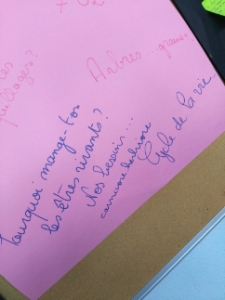 O2
Arbres ... graines
Pourquoi mange-t-on
les êtres vivants ?
Nos besoins...
carnivore herbivore
Cycle de la vie...